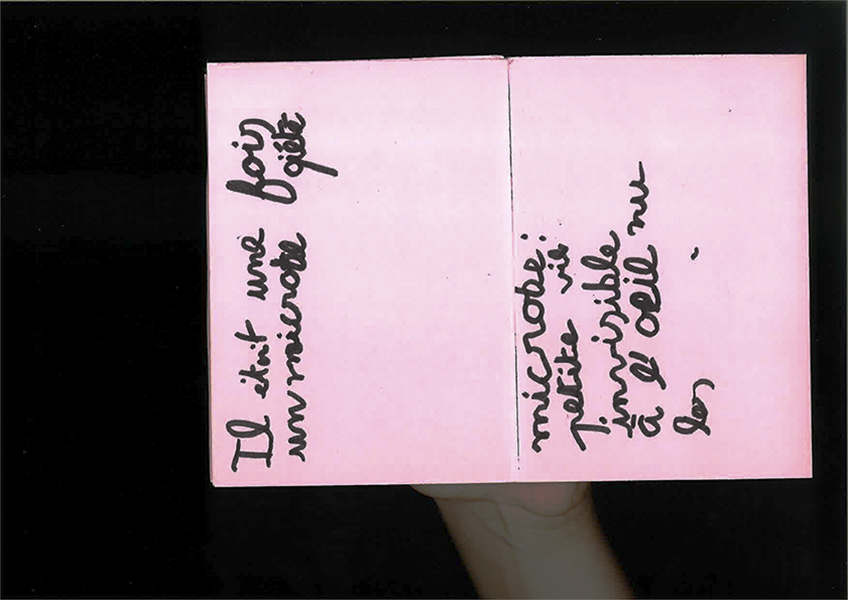 Il était une fois
un microbe
microbe :
petite vie
invisible
à l'oeil nu
les